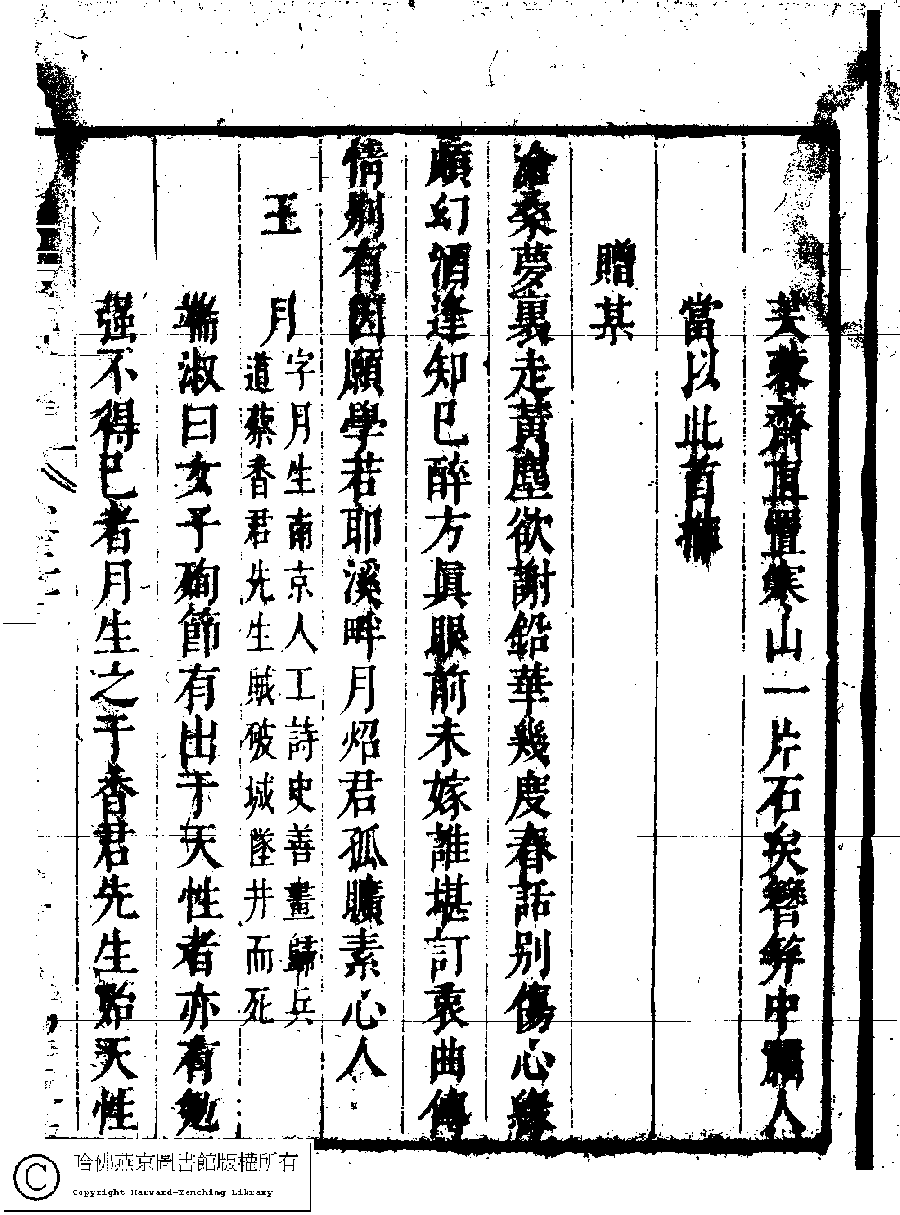 芙蓉齋直置寒山一片石矣簪筓中騷人
當以此首推
贈某
滄桑夢裏走黃塵欲謝鉛華幾度春話別傷心緣
頗幻酒逢知已醉方眞眼前未嫁誰堪訂衷曲傳
情別有因願學若耶溪畔月炤君孤曠素心人
王 月
字月生南京人工詩史善畫歸兵
道蔡香君先生賊破城墜井而死
端淑曰女子殉節有出于天性者亦有勉
强不得已者月生之于香君先生殆天性
哈佛燕京圖書館版權所有
Copyright Harvard-Yenching Library